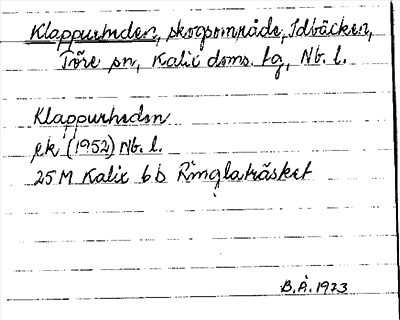 Klappurheden, skogsområde, Idbäcken,
Töre sn, Kalix doms. tg, Nb. l.
Klappurheden
ek (1952) Nb. l.
25 M Kalix 6 b Ringlaträsket
B.Å. 1973